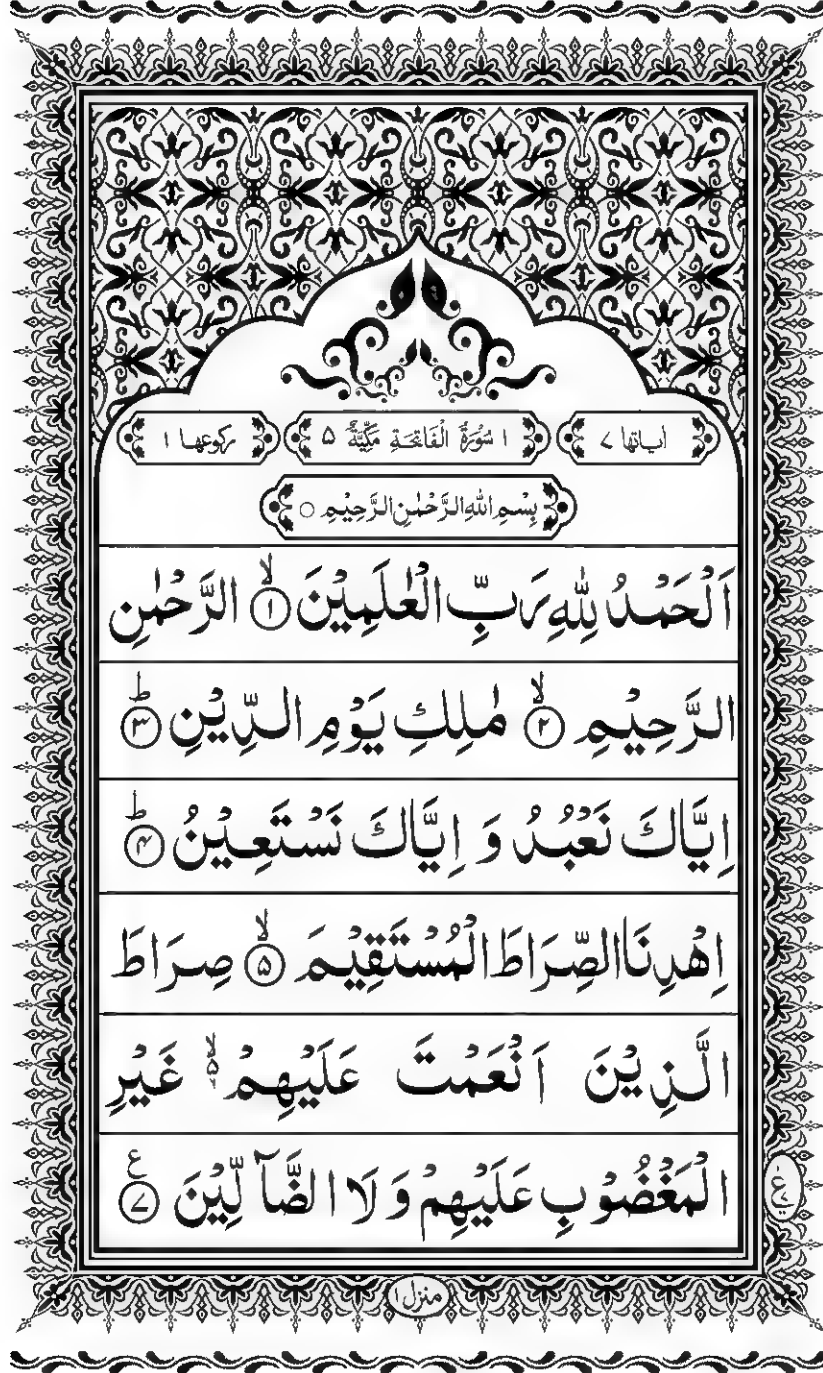 اٰیاتها ۷ ۱ سُوْرَةُ الْفَاتِحَةِ مَكِّيَّةٌ ۵ رکوعها ۱
بِسْمِ اللّٰهِ الرَّحْمٰنِ الرَّحِيْمِ ○
اَلْحَمْدُ لِلّٰهِ رَبِّ الْعٰلَمِيْنَ ۙ﴿۱﴾ الرَّحْمٰنِ
الرَّحِيْمِ ۙ﴿۲﴾ مٰلِكِ يَوْمِ الدِّيْنِ ؕ﴿۳﴾
اِيَّاكَ نَعْبُدُ وَ اِيَّاكَ نَسْتَعِيْنُ ؕ﴿۴﴾
اِهْدِنَا الصِّرَاطَ الْمُسْتَقِيْمَ ۙ﴿۵﴾ صِرَاطَ
الَّذِيْنَ اَنْعَمْتَ عَلَيْهِمْ ۙ۵ غَيْرِ
الْمَغْضُوْبِ عَلَيْهِمْ وَ لَا الضَّآلِّيْنَ ﴿۷﴾ ع
منزل ۱